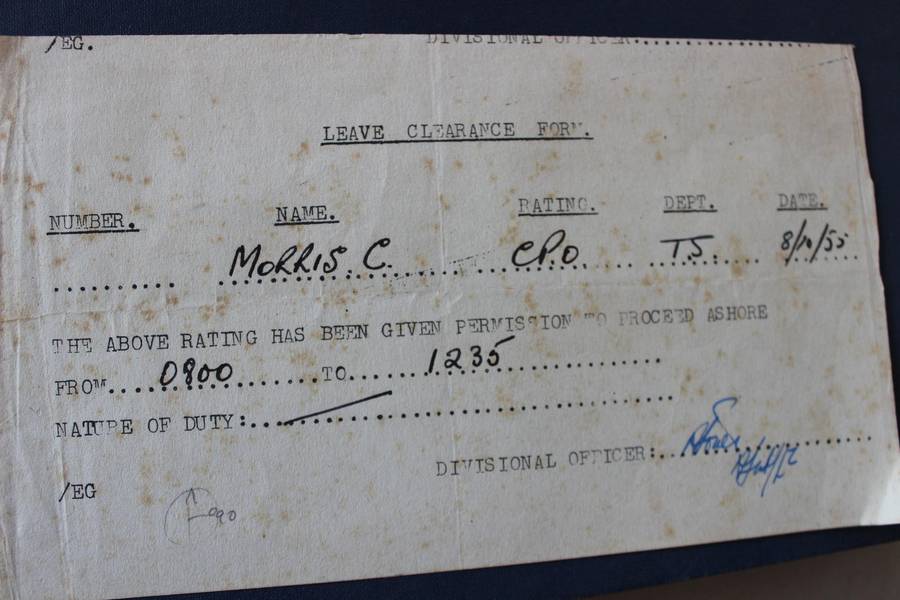 /EG. DIVISIONAL OFFICER:....................
LEAVE CLEARANCE FORM.
NUMBER. NAME. RATING. DEPT. DATE.
............ MORRIS. C. CPO T.S 8/10/55
THE ABOVE RATING HAS BEEN GIVEN PERMISSION TO PROCEED ASHORE
FROM....0900.........TO......1235...............
NATURE OF DUTY:................................
DIVISIONAL OFFICER:....................
/EG